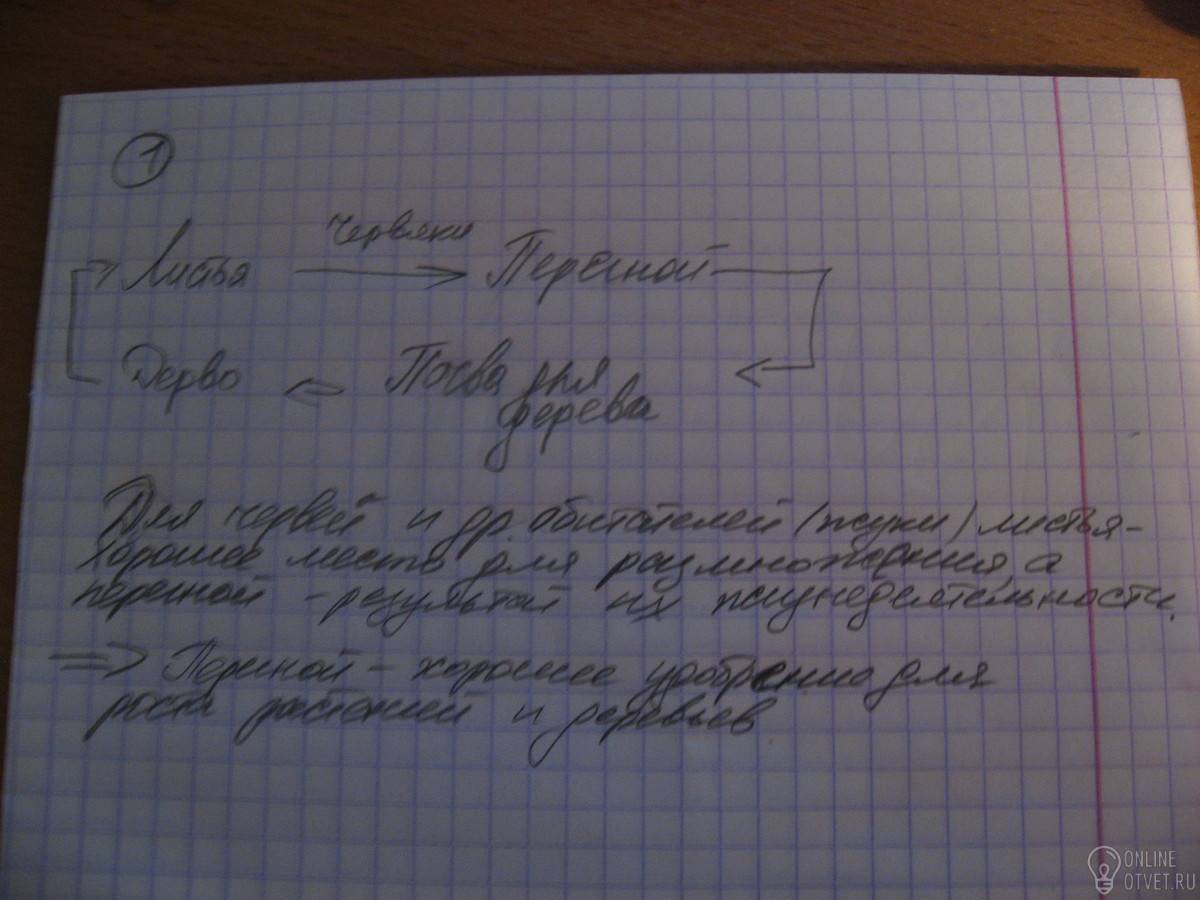 1
червяки
Листья Перегной
Дерво Почва для
дерева
Для червей и др. обитателей (жуки) листья-
хорошее место для размножения, а
перегной - результат их жизнедеятельности.
=> Перегной - хорошее удобрение для
роста растений и деревьев
ONLINE
OTVET.RU